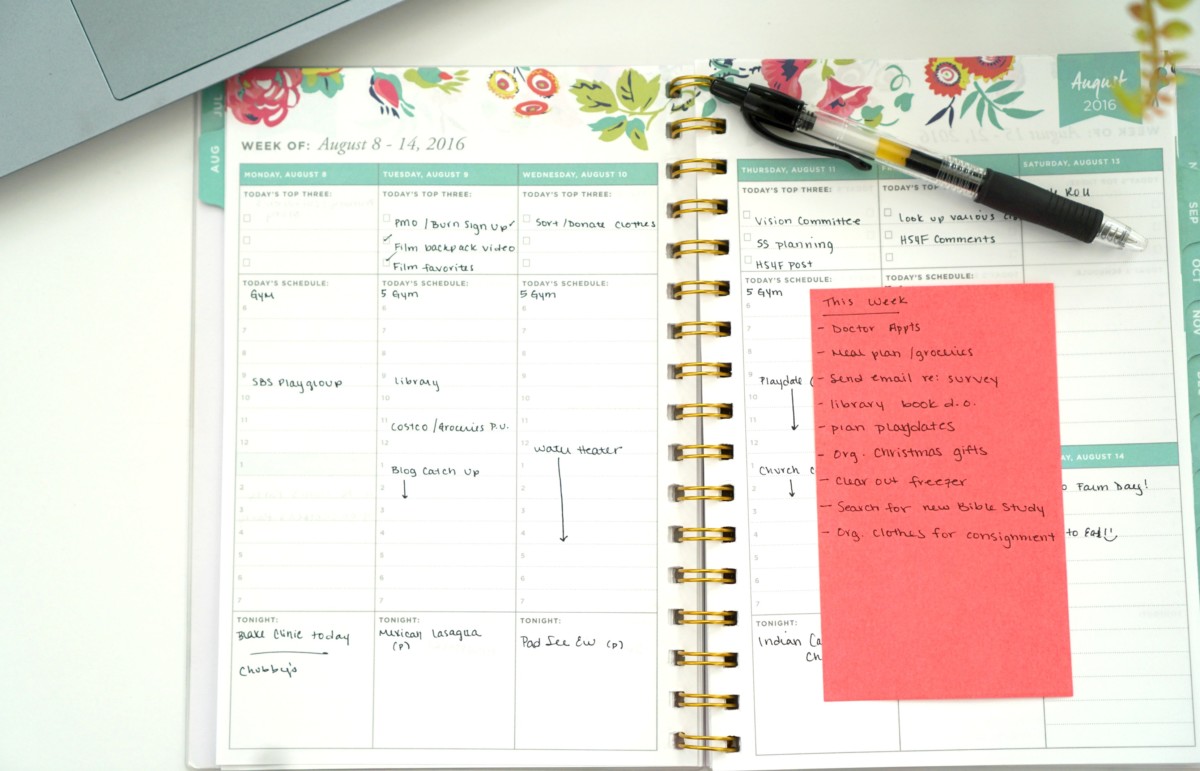 JUL
AUG
WEEK OF: August 8 - 14, 2016
MONDAY, AUGUST 8
TODAY'S TOP THREE:
TODAY'S SCHEDULE:
Gym
6
7
8
9
SBS Playgroup
10
11
12
1
2
3
4
5
6
7
TONIGHT:
Blake Clinic today
Chubby's
TUESDAY, AUGUST 9
TODAY'S TOP THREE:
PMO / Burn Sign up
Film backpack video
Film favorites
TODAY'S SCHEDULE:
5 Gym
6
7
8
9
library
10
11
Costco / Groceries P.U.
12
1
Blog Catch up
2
3
4
5
6
7
TONIGHT:
Mexican Lasagna
(P)
WEDNESDAY, AUGUST 10
TODAY'S TOP THREE:
Sort / Donate Clothes
TODAY'S SCHEDULE:
5 Gym
6
7
8
9
10
11
12
Water Heater
1
2
3
4
5
6
7
TONIGHT:
Pad See Ew (P)
August
2016
THURSDAY, AUGUST 11
TODAY'S TOP THREE:
Vision Committee
SS planning
HS4F Post
TODAY'S SCHEDULE:
5 Gym
6
7
8
9
Playdate
10
11
12
1
Church
2
3
4
5
6
7
TONIGHT:
Indian
TODAY'S TOP THREE:
Look up various
HS4F Comments
TODAY'S SCHEDULE:
SATURDAY, AUGUST 13
AUGUST 14
Farm Day!
to
This Week
- Doctor Appts
- Meal plan / groceries
- Send email re: survey
- library book d.o.
- plan playdates
- Org. Christmas gifts
- Clear out freezer
- Search for new Bible Study
- Org. Clothes for consignment
SEP
NOV